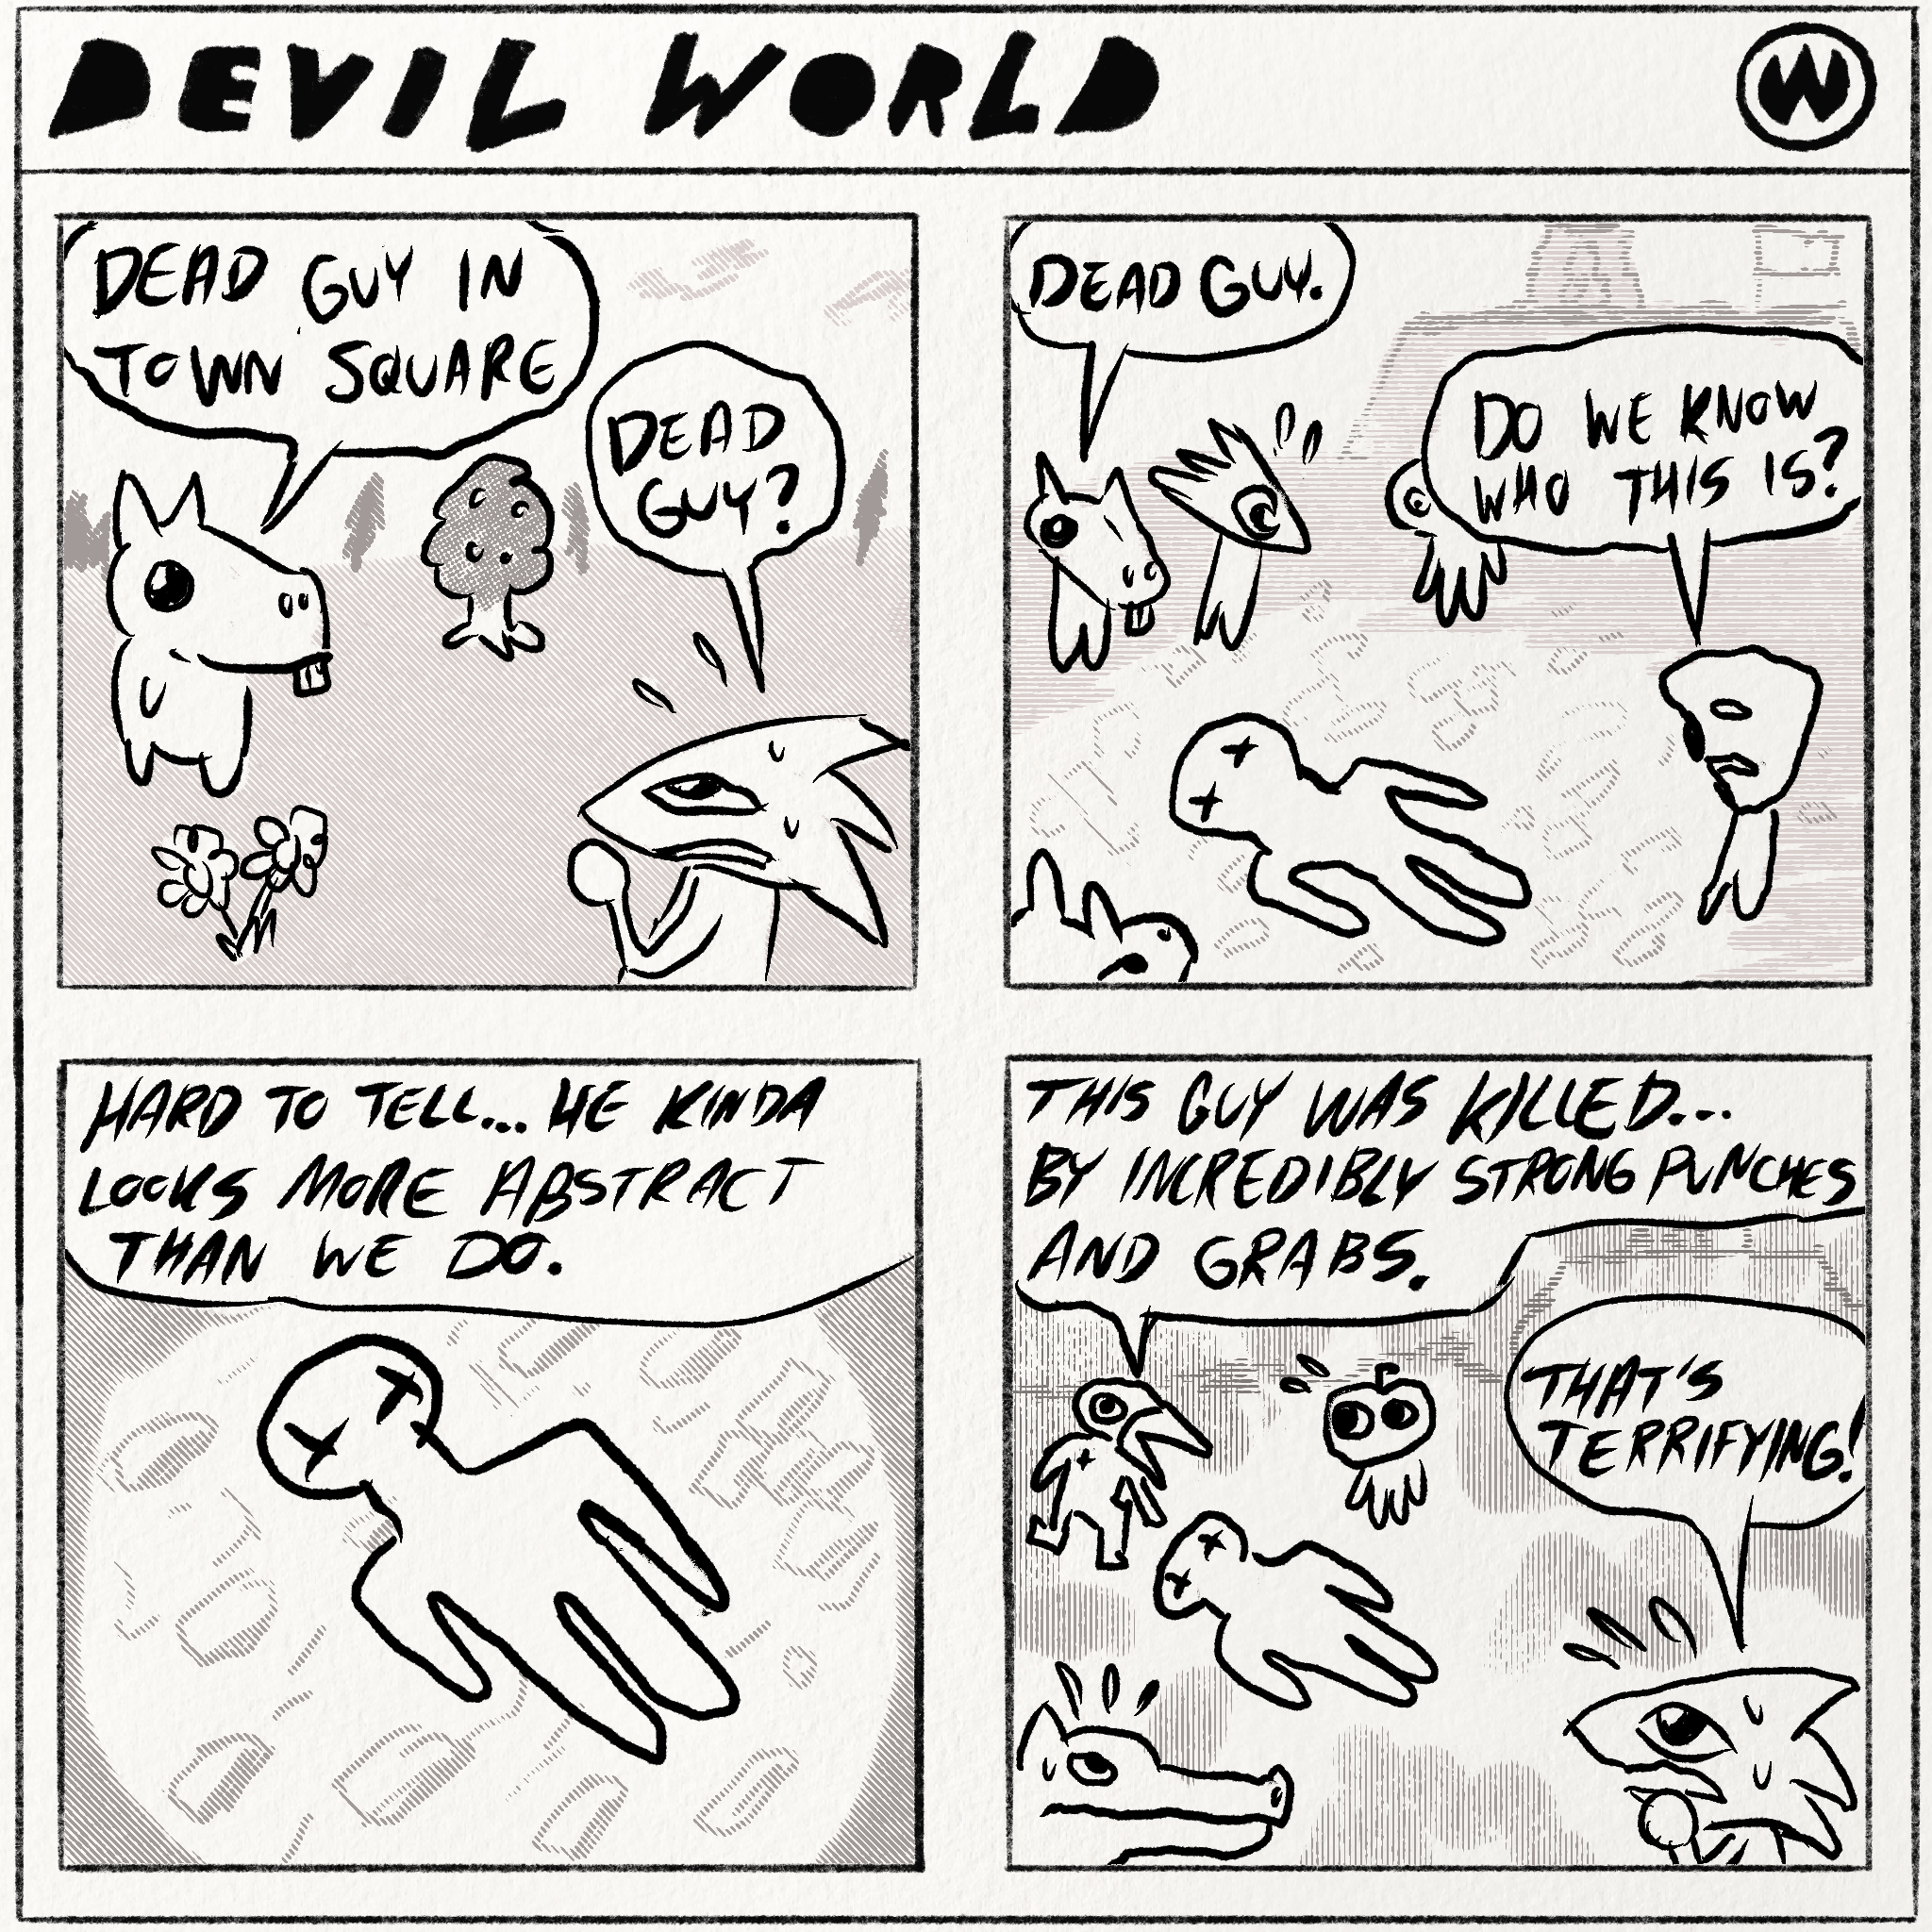 DEVIL WORLD
W
DEAD GUY IN
TOWN SQUARE
DEAD
GUY?
DEAD GUY.
DO WE KNOW
WHO THIS IS?
HARD TO TELL... HE KINDA
LOOKS MORE ABSTRACT
THAN WE DO.
THIS GUY WAS KILLED...
BY INCREDIBLY STRONG PUNCHES
AND GRABS.
THAT'S
TERRIFYING!